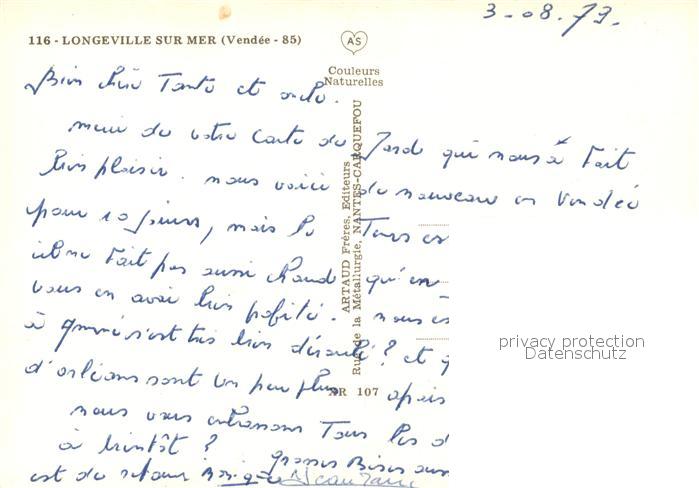 3-08.73.
116 - LONGEVILLE SUR MER (Vendée - 85)
AS
Couleurs
Naturelles
Bien chère Tante et oncle.
merci de votre carte de Jard qui nous à fait
bien plaisir. nous voici de nouveau en Vendée
pour 10 jours, mais le Temps es
il ne fait pas aussi chaud qu'en
vous en avai bien profité. nous es
à s'est très bien déroulé? et
d'orléans sont un peu plus apais
nous vous embrassons Tous les d
à bientôt?
grosses Bises aux
est de retour
ARTAUD Frères, Editeurs
Rue de la Métallurgie, NANTES-CARQUEFOU
AR 107
privacy protection
Datenschutz